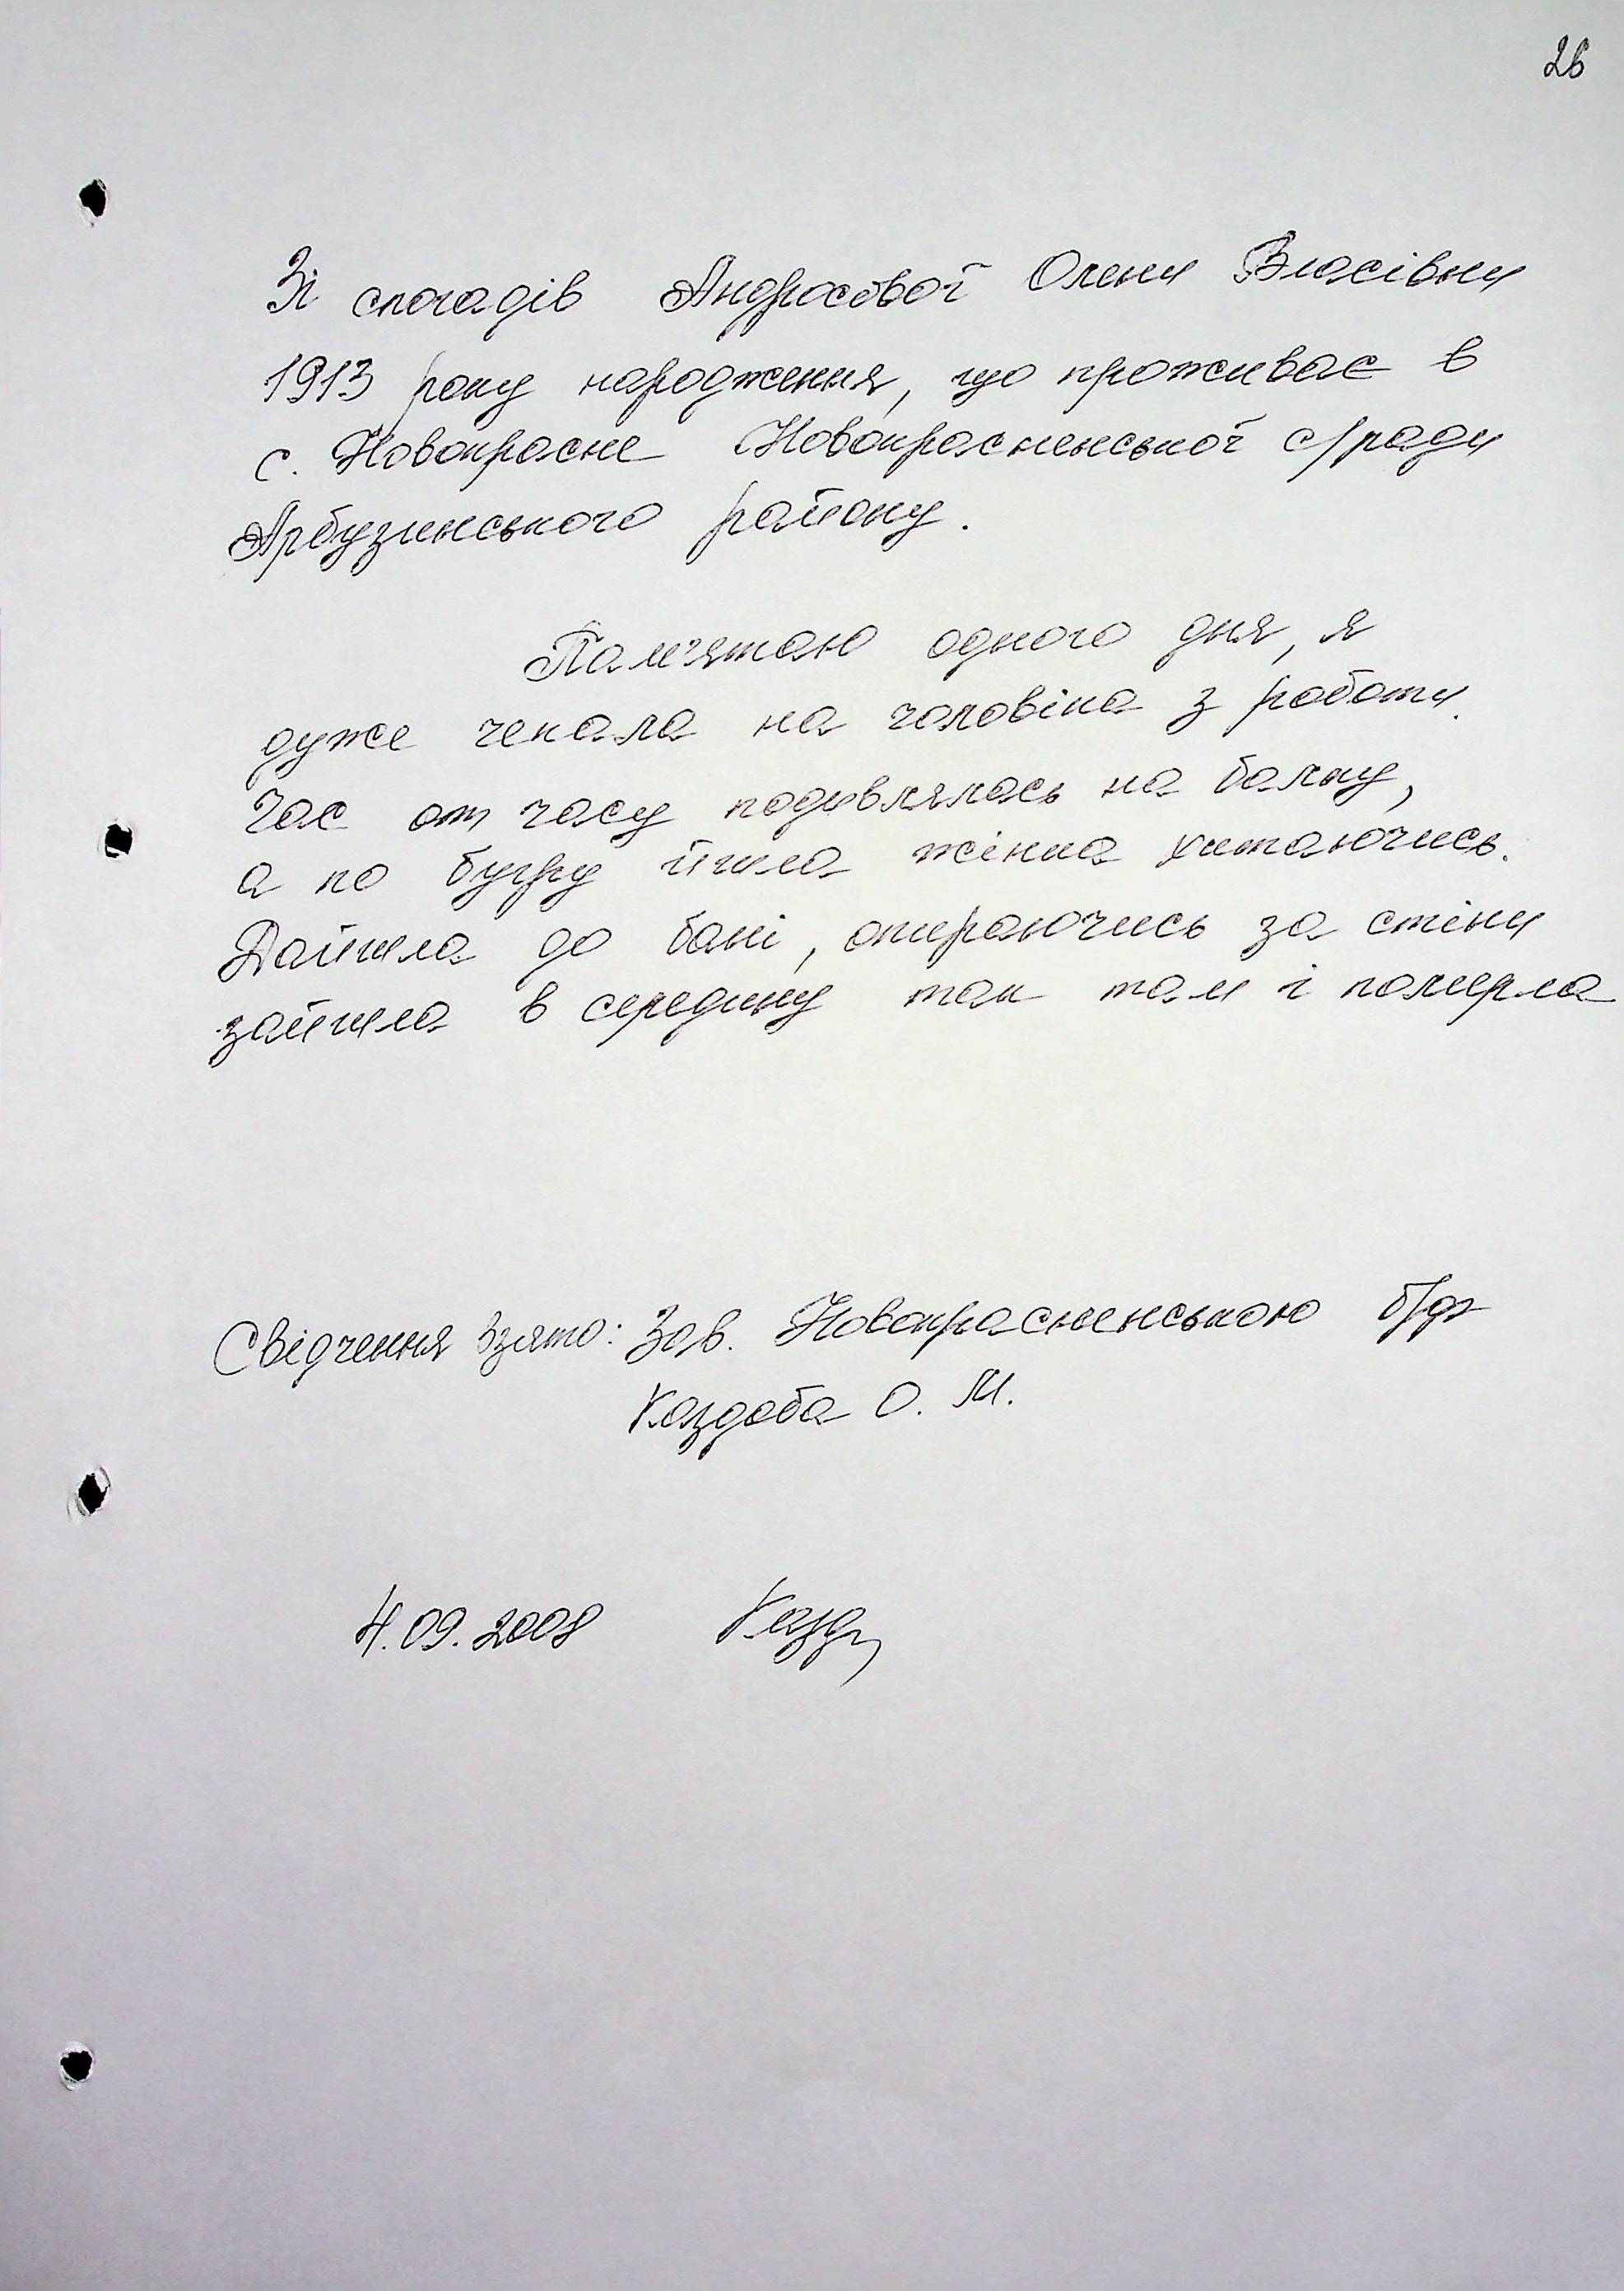 26
Зі спогадів Андросової Олени Власівни
1913 року народження, що проживає в
с. Новокрасне Новокрасненської с/ради
Арбузинського району.
Пам'ятаю одного дня, я
дуже чекала на чоловіка з роботи.
Час от часу подивлялась на балку,
а по бугру йшла жінка хитаючись.
Дойшла до бані, опираючись за стіни
зайшла в середину так там і померла
Свідчення взято: Зав. Новокрасненською б/ф
Каздоба О. М.
4.09.2008